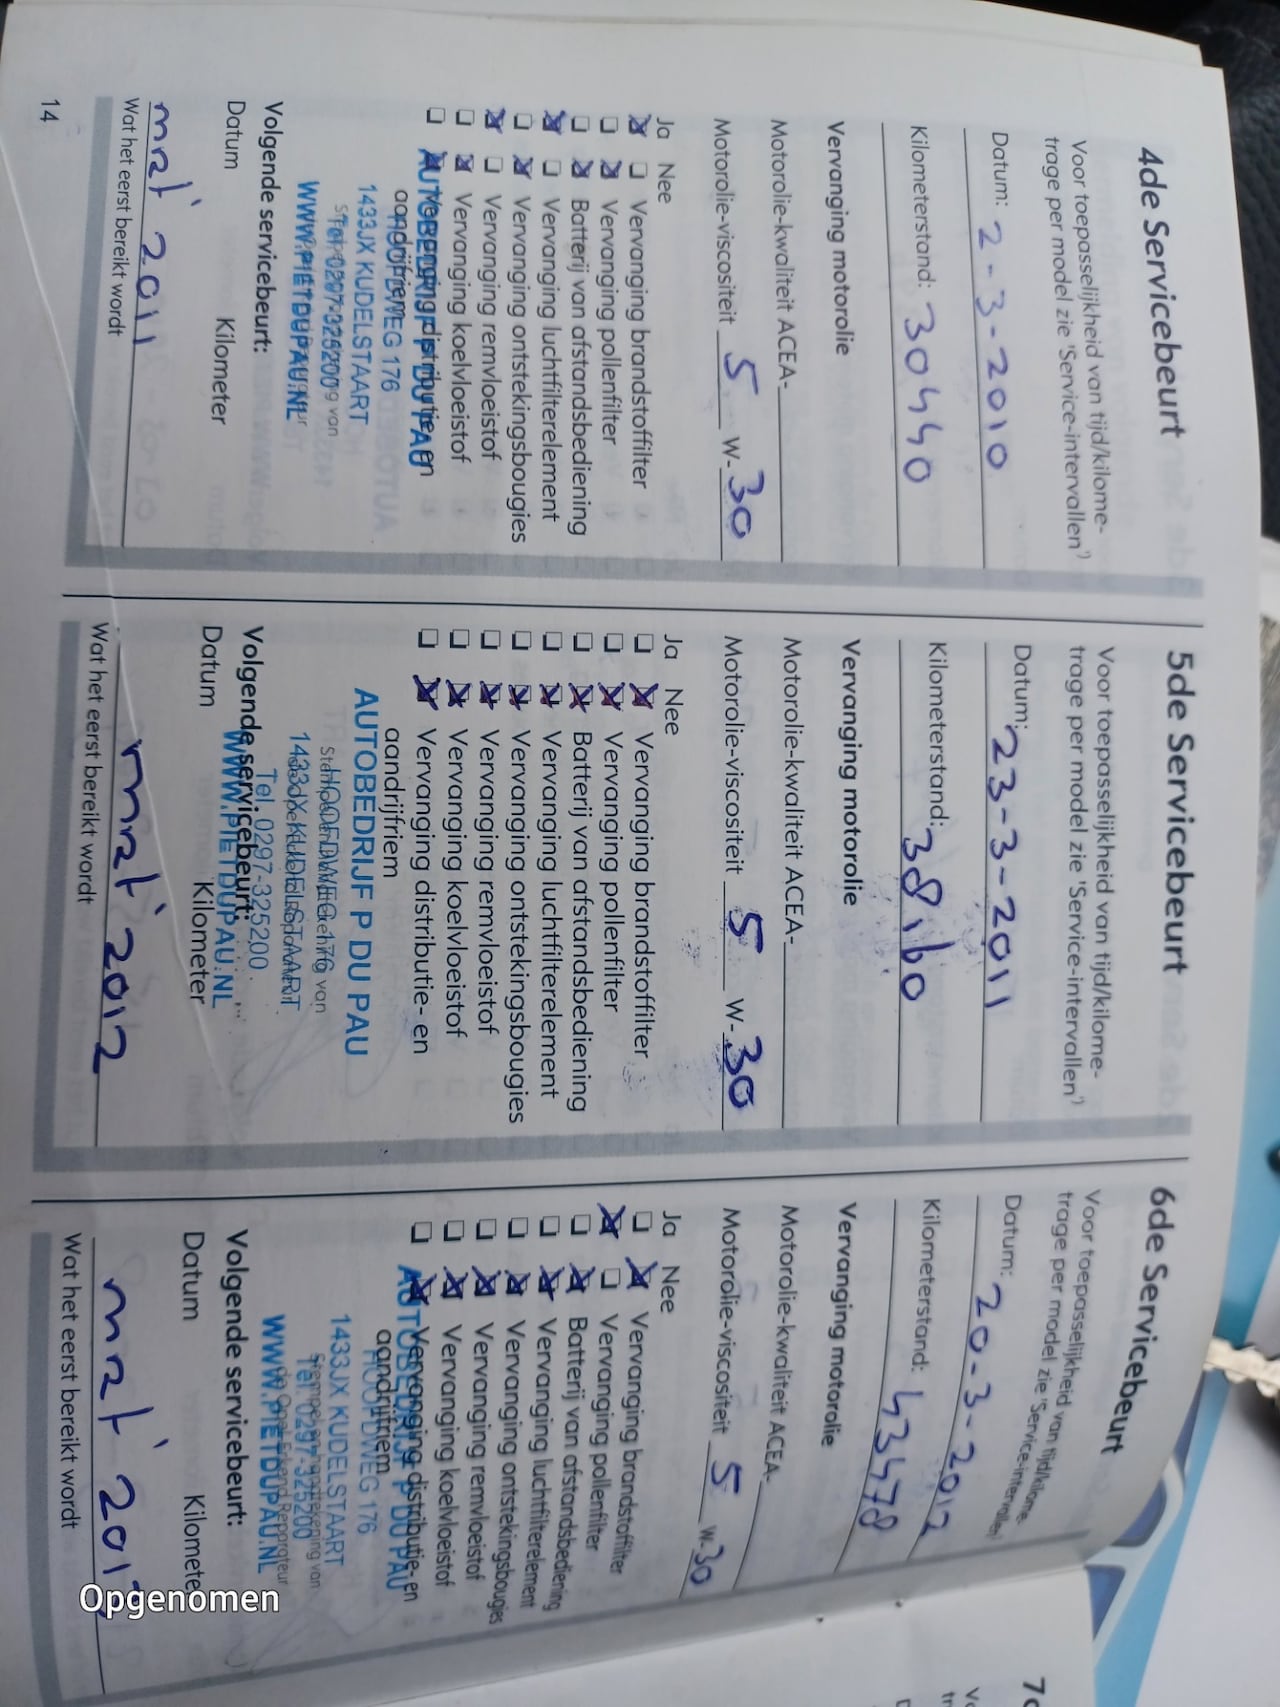 4de Servicebeurt
Voor toepasselijkheid van tijd/kilome-
trage per model zie 'Service-intervallen')
Datum: 2-3-2010
Kilometerstand: 30440
Vervanging motorolie
Motorolie-kwaliteit ACEA-
Motorolie-viscositeit 5 W-30
Ja Nee
Vervanging brandstoffilter
Vervanging pollenfilter
Batterij van afstandsbediening
Vervanging luchtfilterelement
Vervanging ontstekingsbougies
Vervanging remvloeistof
Vervanging koelvloeistof
Vervanging distributie- en
aandrijfriem
AUTOBEDRIJF P DU PAU
HOOFDWEG 176
1433JX KUDELSTAART
Tel. 0297-325200
WWW.PIETDUPAU.NL
Volgende servicebeurt:
Datum Kilometer
mrt' 2011
Wat het eerst bereikt wordt
14
5de Servicebeurt
Voor toepasselijkheid van tijd/kilome-
trage per model zie 'Service-intervallen')
Datum: 23-3-2011
Kilometerstand: 38160
Vervanging motorolie
Motorolie-kwaliteit ACEA-
Motorolie-viscositeit 5 W-30
Ja Nee
Vervanging brandstoffilter
Vervanging pollenfilter
Batterij van afstandsbediening
Vervanging luchtfilterelement
Vervanging ontstekingsbougies
Vervanging remvloeistof
Vervanging koelvloeistof
Vervanging distributie- en
aandrijfriem
AUTOBEDRIJF P DU PAU
HOOFDWEG 176
1433JX KUDELSTAART
Tel. 0297-325200
WWW.PIETDUPAU.NL
Volgende servicebeurt:
Datum Kilometer
mrt' 2012
Wat het eerst bereikt wordt
6de Servicebeurt
Voor toepasselijkheid van tijd/kilome-
trage per model zie 'Service-intervallen')
Datum: 20-3-2012
Kilometerstand: 43478
Vervanging motorolie
Motorolie-kwaliteit ACEA-
Motorolie-viscositeit 5 W-30
Ja Nee
Vervanging brandstoffilter
Vervanging pollenfilter
Batterij van afstandsbediening
Vervanging luchtfilterelement
Vervanging ontstekingsbougies
Vervanging remvloeistof
Vervanging koelvloeistof
Vervanging distributie- en
aandrijfriem
AUTOBEDRIJF P DU PAU
HOOFDWEG 176
1433JX KUDELSTAART
Tel. 0297-325200
WWW.PIETDUPAU.NL
Volgende servicebeurt:
Datum Kilomete
mrt'
Wat het eerst bereikt wordt
Opgenomen